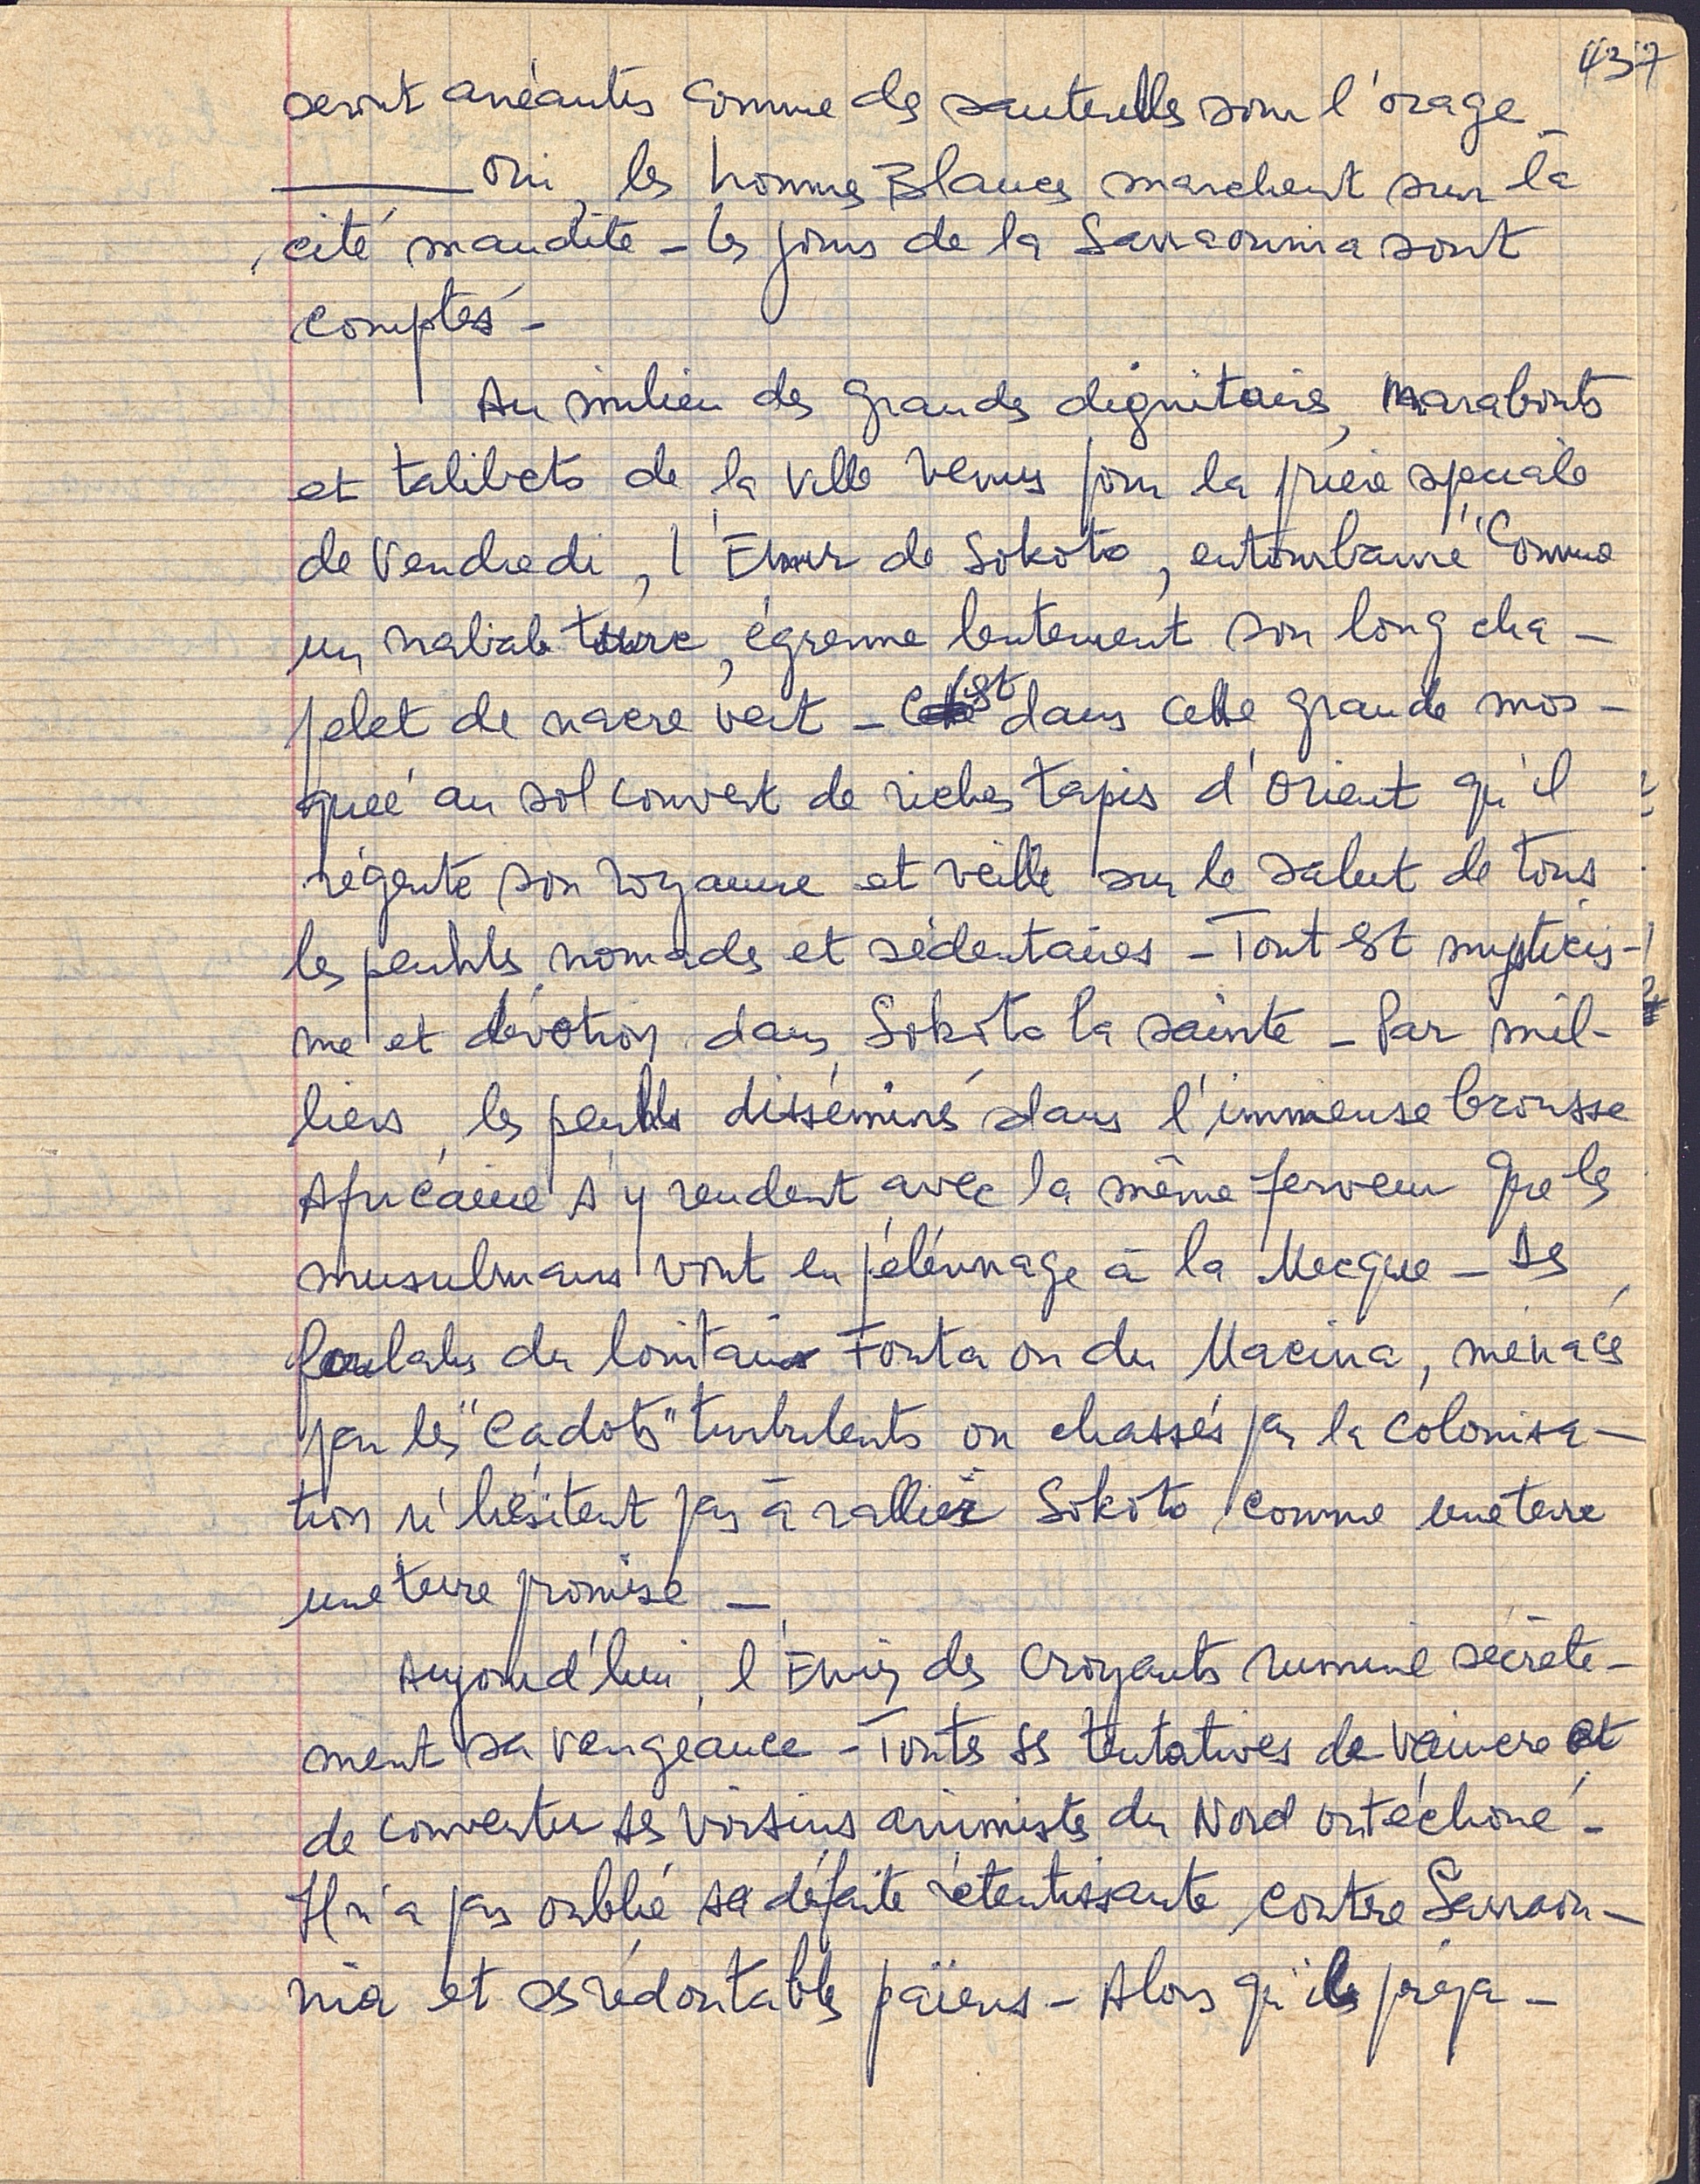 437
seront anéantis comme des sauterelles sous l'orage_
____ oui, les hommes Blancs marchent sur la
cité maudite - les jours de la Sarraounia sont
comptés -
Au milieu des grands dignitaires, Marabouts
et talibets de la ville venus pour la prière spéciale
de Vendredi, l'Emir de Sokoto, enturbanné comme
un nabab turc, égrenne lentement son long cha-
pelet de nacre vert - C'est dans cette grande mos-
quée au sol couvert de riches tapis d'Orient qu'il
régente son royaume et veille sur le salut de tous
les peuhls nomades et sédentaires - Tout est mysticis-
me et dévotion dans Sokoto la sainte - Par mil-
liers, les peuhls disséminés dans l'immense brousse
Africaine s'y rendent avec la même ferveur que les
musulmans vont en pélérinage à la Mecque - Des
foulahs du lointain Fouta ou du Macina, menacés
par les "Cadots" turbulents ou chassés par la colonisa-
tion n'hésitent pas à rallier Sokoto comme une terre
une terre promise -
Aujourd'hui, l'Emir des Croyants rumine secrète-
ment sa vengeance - Toutes ses tentatives de vaincre et
de convertir ses voisins animistes du Nord ont échoué -
Il n'a pas oublié sa défaite rétentissante contre Sarraou-
nia et ses rédoutables païens - Alors qu'ils prépa-